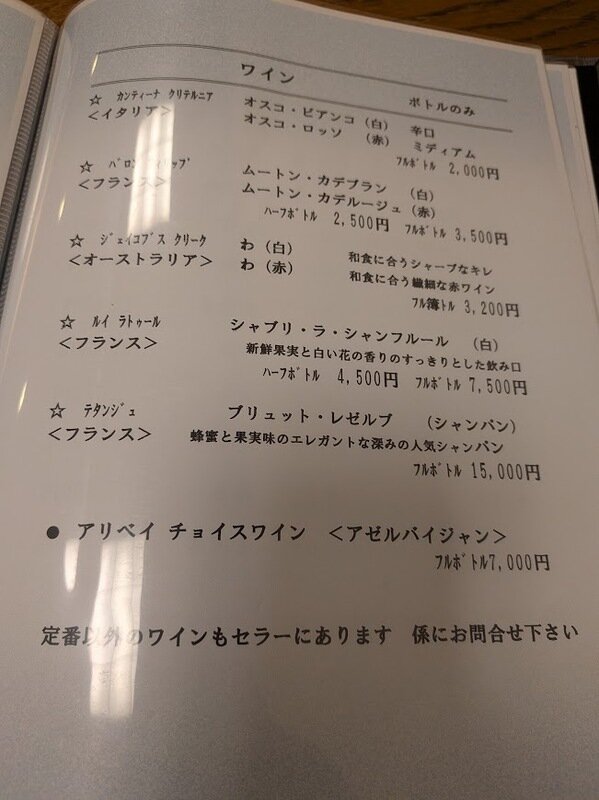 ワイン
ボトルのみ
☆ カンティーナ クリテルニア オスコ・ビアンコ (白) 辛口
<イタリア> オスコ・ロッソ (赤) ミディアム
フルボトル 2,000円
☆ バロン フィリップ ムートン・カデブラン (白)
<フランス> ムートン・カデルージュ (赤)
ハーフボトル 2,500円 フルボトル 3,500円
☆ ジェイコブス クリーク わ (白) 和食に合うシャープなキレ
<オーストラリア> わ (赤) 和食に合う繊細な赤ワイン
フル簿トル 3,200円
☆ ルイ ラトゥール シャブリ・ラ・シャンフルール (白)
<フランス> 新鮮果実と白い花の香りのすっきりとした飲み口
ハーフボトル 4,500円 フルボトル 7,500円
☆ テタンジュ ブリュット・レゼルブ (シャンパン)
<フランス> 蜂蜜と果実味のエレガントな深みの人気シャンパン
フルボトル 15,000円
● アリベイ チョイスワイン <アゼルバイジャン>
フルボトル7,000円
定番以外のワインもセラーにあります 係にお問合せ下さい